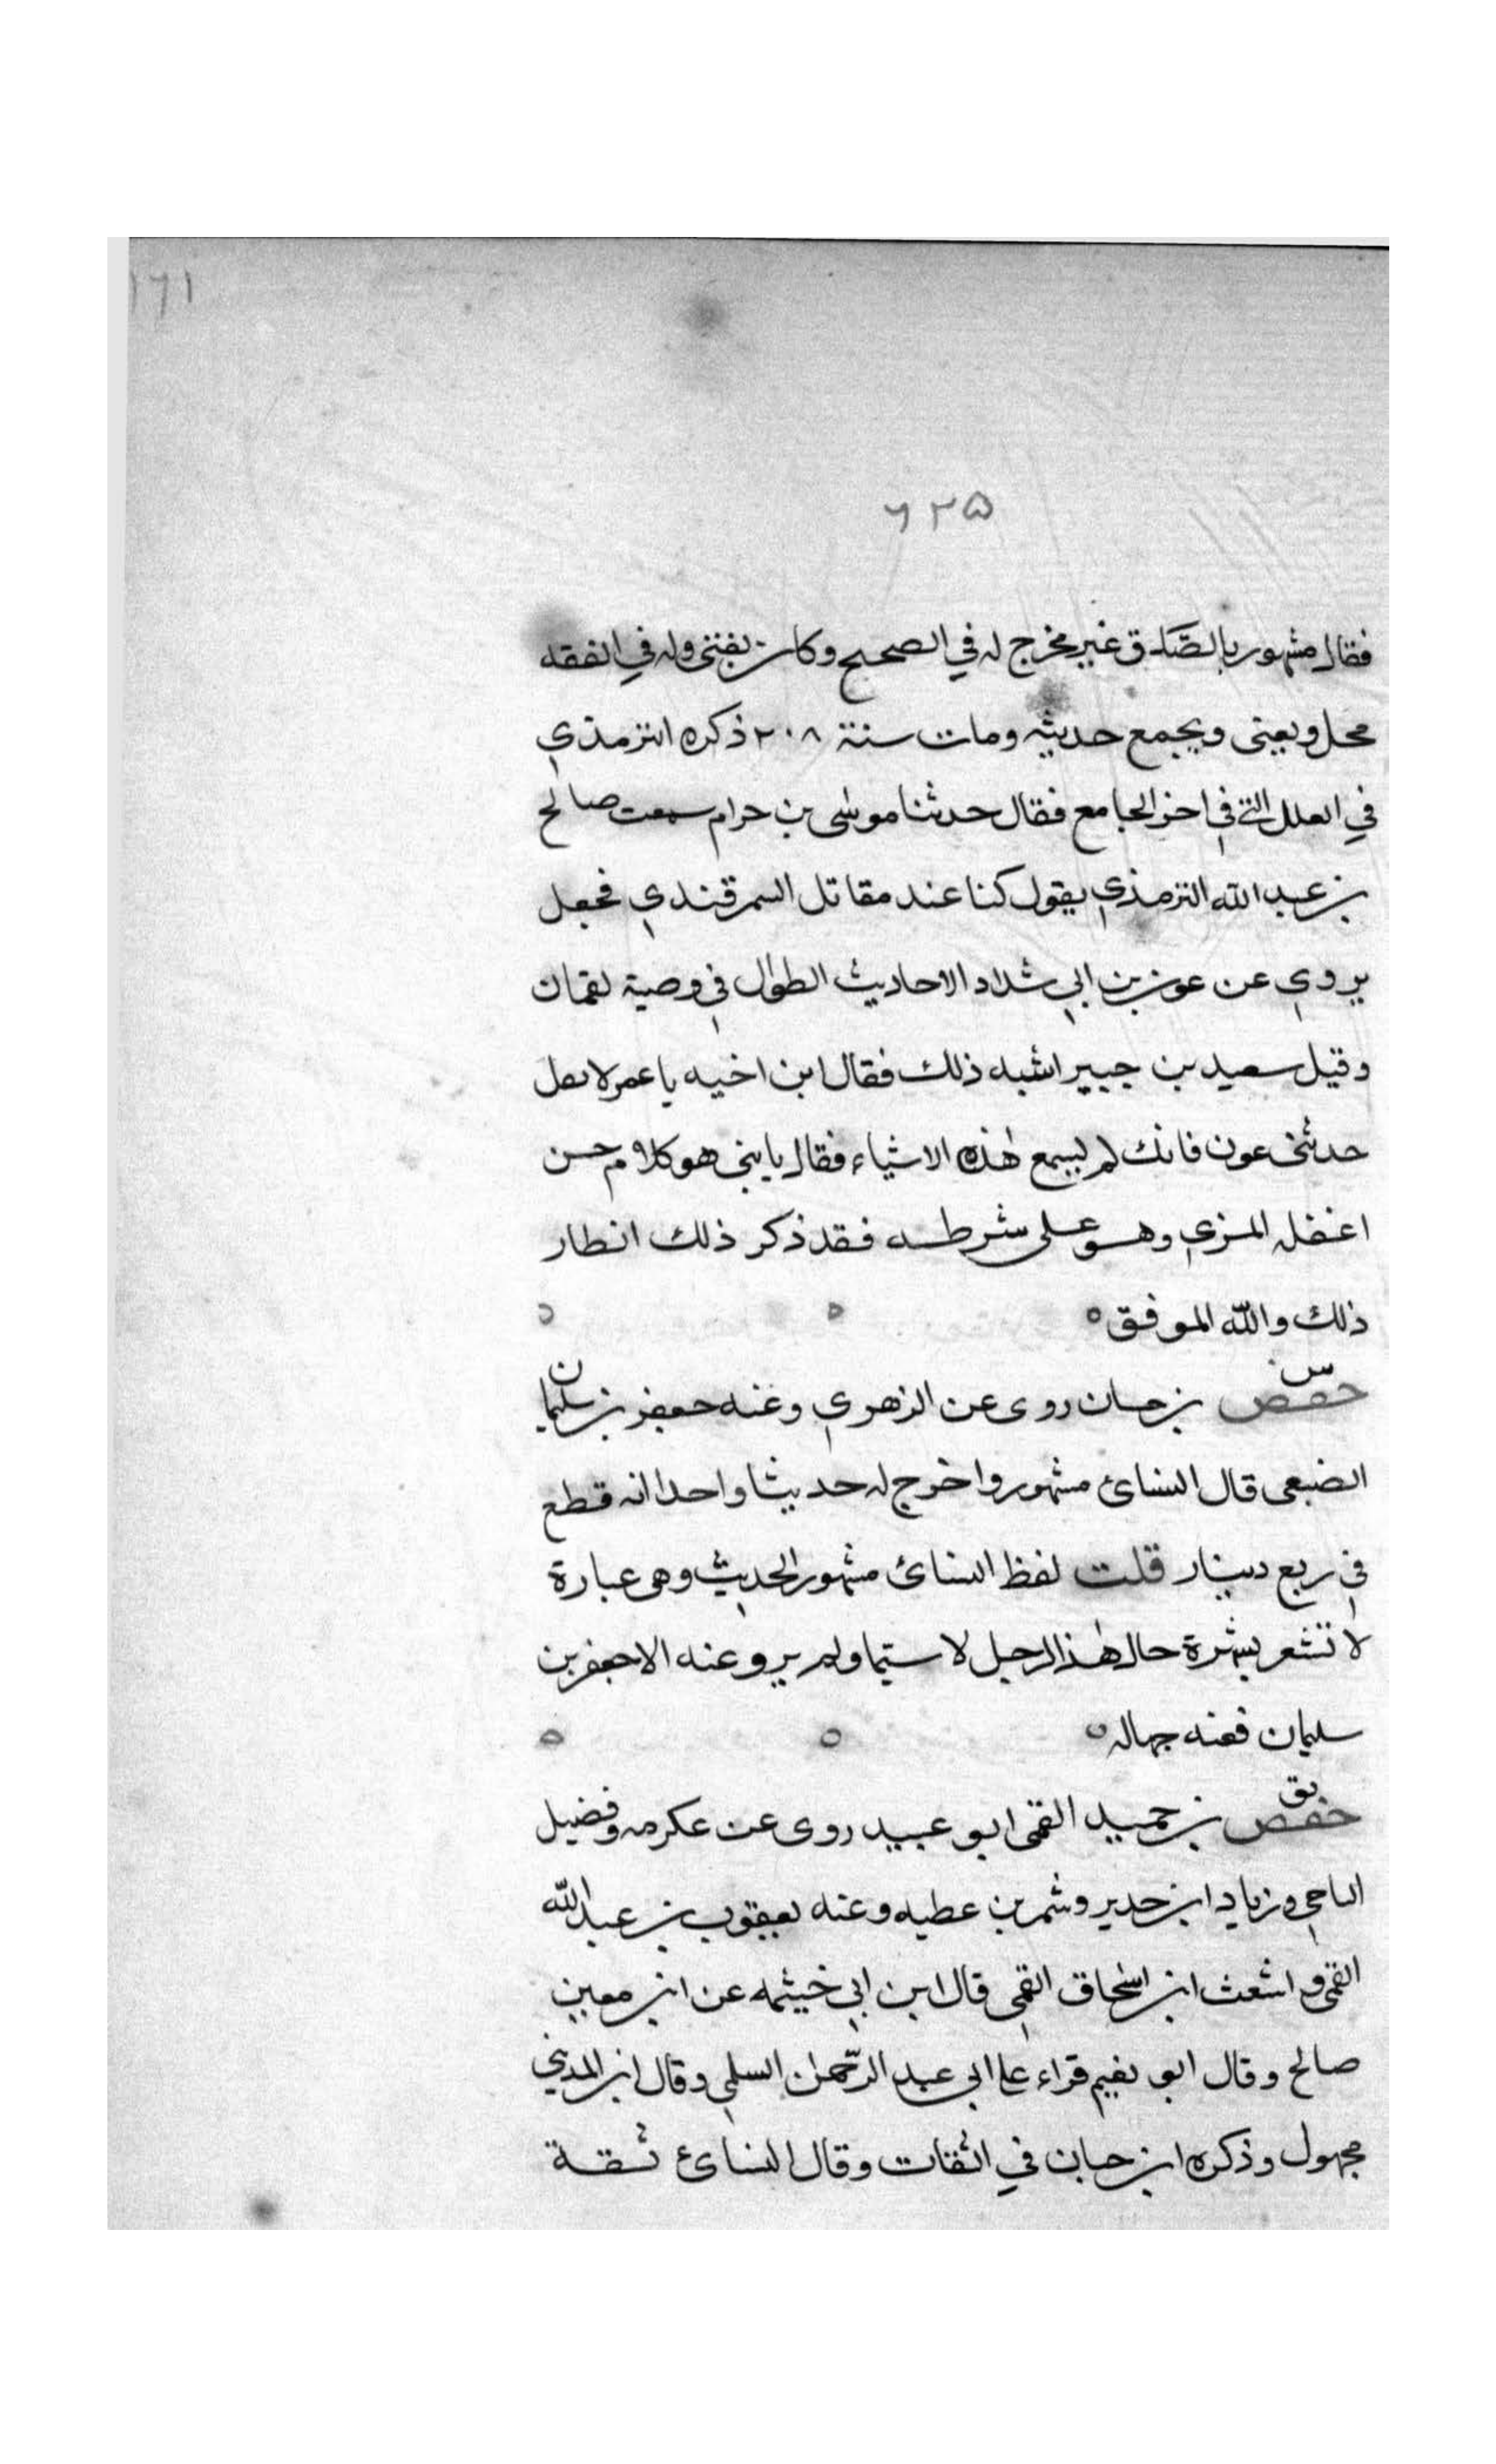 ١٦١
٦٢٥
فقال مشهور بالصدق غير مخرج له في الصحيح وكان يفتي وله في الفقه
محل ويعنى ويجمع حديثه ومات سنة ٢٠٨ ذكره الترمذي
في العلل التي في اخر الجامع فقال حدثنا موسى بن حرام سمعت صالح
بن عبد الله الترمذي يقول كنا عند مقاتل السمرقندي فجعل
يروي عن عون بن ابي شداد الاحاديث الطوال في وصية لقمان
وقتيل سعيد بن جبير اشبه ذلك فقال ابن اخيه يا عمر لا تقل
حدثني عون فانك لم تسمع هذه الاشياء فقال يا بني هو كلام حسن
اغفله المزي وهو على شرطه فقد ذكر ذلك انطار
ذلك والله الموفق ه ه ه
س
حفص بن حسان روى عن الزهري وعنه جعفر بن سليمان
الضبعى قال النسائ مشهور واخرج له حديثا واحدا انه قطع
في ربع دينار قلت لفظ النسائ مشهور الحديث وهى عبارة
لا تشعر بشهرة حال هذا الرجل لا سيما ولم يرو عنه الا جعفر بن
سليمان ففنه جهاله ه ه ه
فق
حفص بن حميد القمى ابو عبيد روى عن عكرمه وفضيل
الناجي وزياد ابن حدير وشمر بن عطيه وعنه يعقوب بن عبد الله
القمي واشعث ابن اسحاق القمي قال ابن ابي خيثمه عن ابن معين
صالح وقال ابو نعيم قراء على ابي عبد الرحمن السلمي وقال ابن المديني
مجهول وذكره ابن حبان في الثقات وقال النسائ ثقة